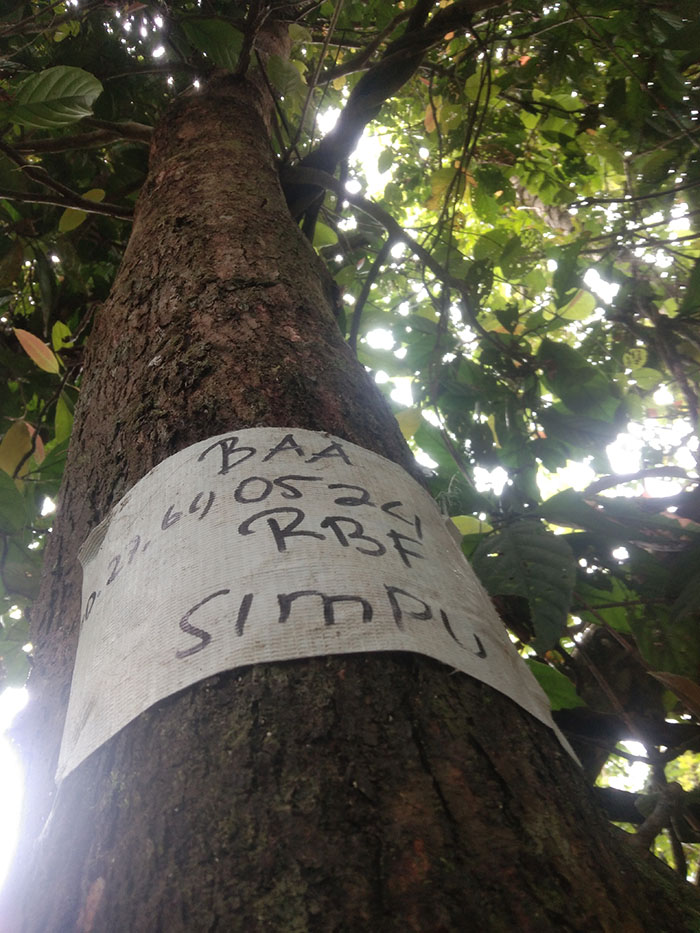 BAA
27, 64 05 24
RBF
SIMPU